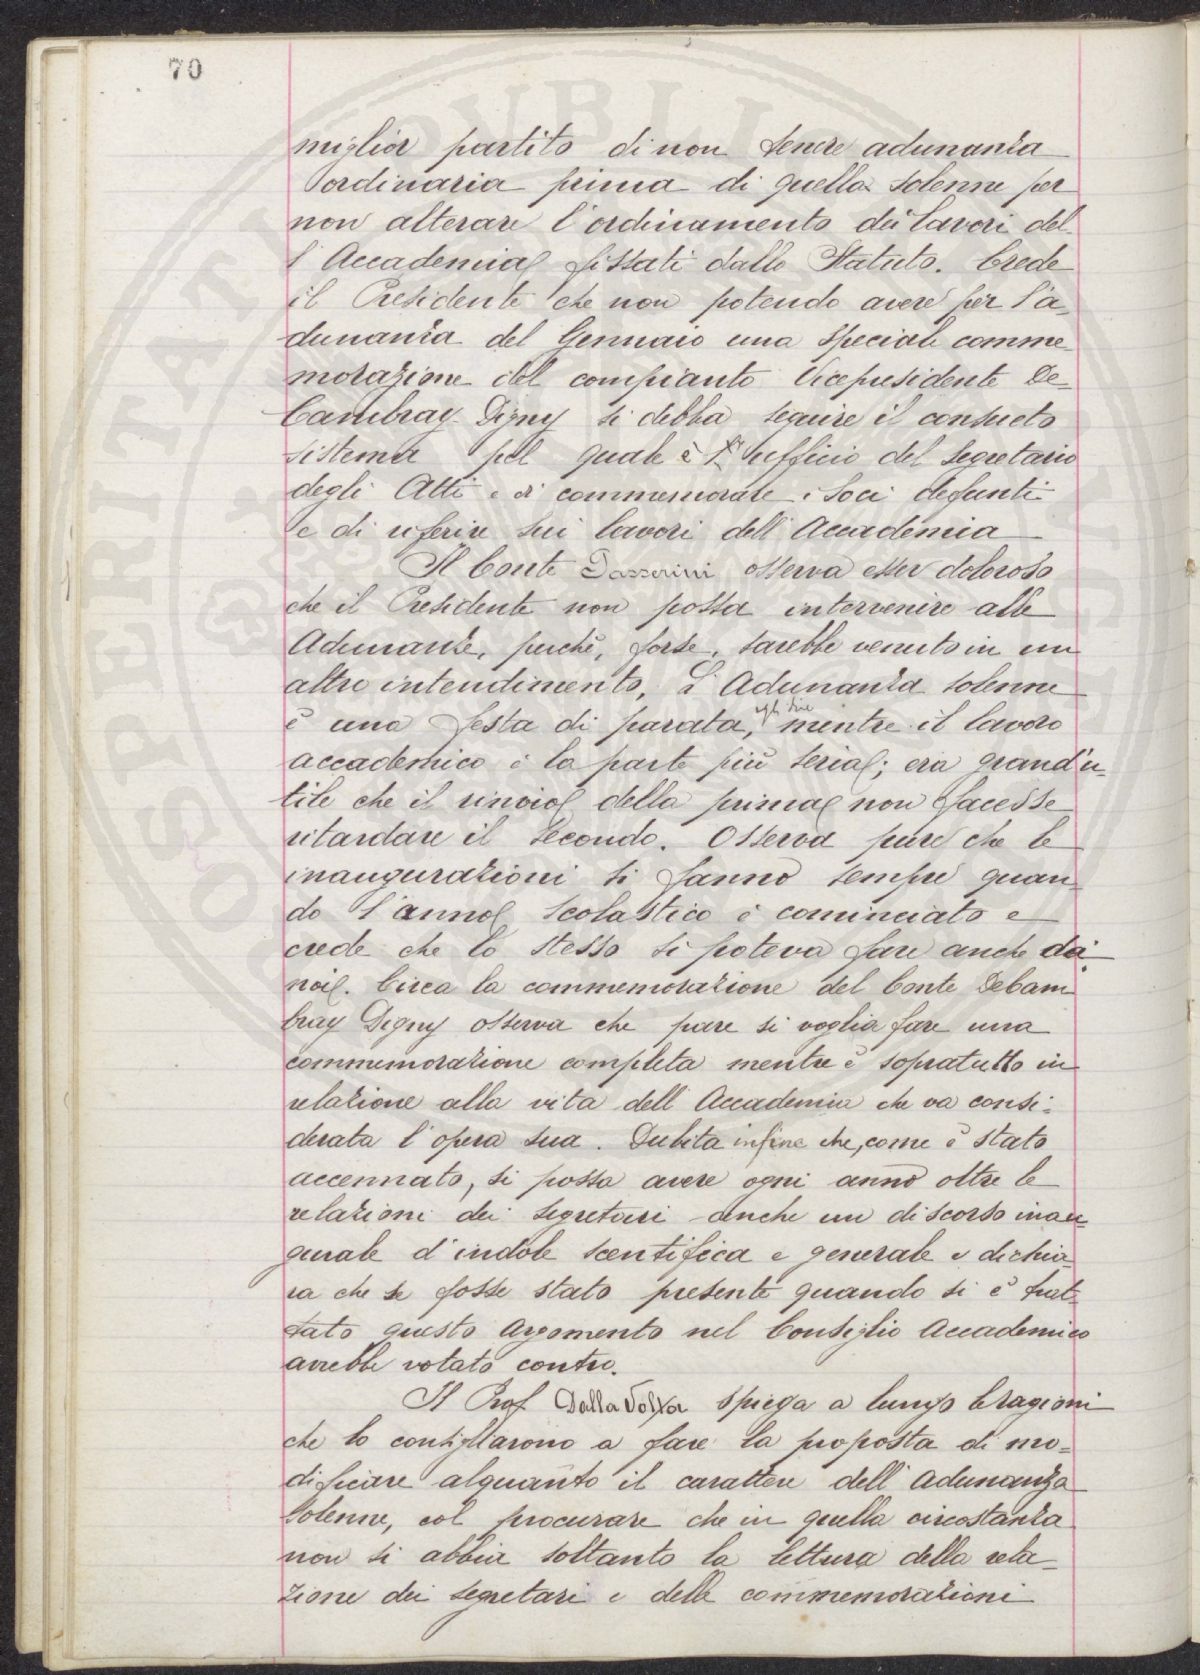 70
miglior partito di non tenere adunanza
ordinaria prima di quella solenne per
non alterare l'ordinamento dei lavori del-
l'Accademia fissati dallo Statuto. Crede
il Presidente che non potendo avere per l'a-
dunanza del Gennaio una speciale comme-
morazione del compianto Vicepresidente De-
Cambray Digny si debba seguire il consueto
sistema pel quale è ufficio del Segretario
degli Atti e di commemorare i Soci defunti
e di riferire sui lavori dell'Accademia
Il Conte Passerini osserva esser doloroso
che il Presidente non possa intervenire alle
Adunanze, perchè, forse, sarebbe venuto in un
altro intendimento. L'Adunanza solenne
è una festa di parata, egli dice mentre il lavoro
accademico è la parte più seria; era grand'u-
tile che il rinvio della prima non facesse
ritardare il secondo. Osserva pure che le
inaugurazioni si fanno sempre quan-
do l'anno scolastico è cominciato e
crede che lo stesso si poteva fare anche da
noi. Circa la commemorazione del Conte DeCam
bray Digny osserva che pare si voglia fare una
commemorazione completa mentre è sopratutto in
relazione alla vita dell'Accademia che va consi-
derata l'opera sua. Dubita infine che, come è stato
accennato, si possa avere ogni anno oltre le
relazioni dei segretari anche un discorso inau-
gurale d'indole scentifica e generale e dichia-
ra che se fosse stato presente quando si è trat-
tato questo argomento nel Consiglio Accademico
avrebbe votato contro.
Il Prof Dalla Volta spiega a lungo le ragioni
che lo consigliarono a fare la proposta di mo-
dificare alquanto il carattere dell'adunanza
solenne, col procurare che in quella circostanza
non si abbia soltanto la lettura della rela-
zione dei segretari e delle commemorazioni
SOSPERITATI PUBLICAE